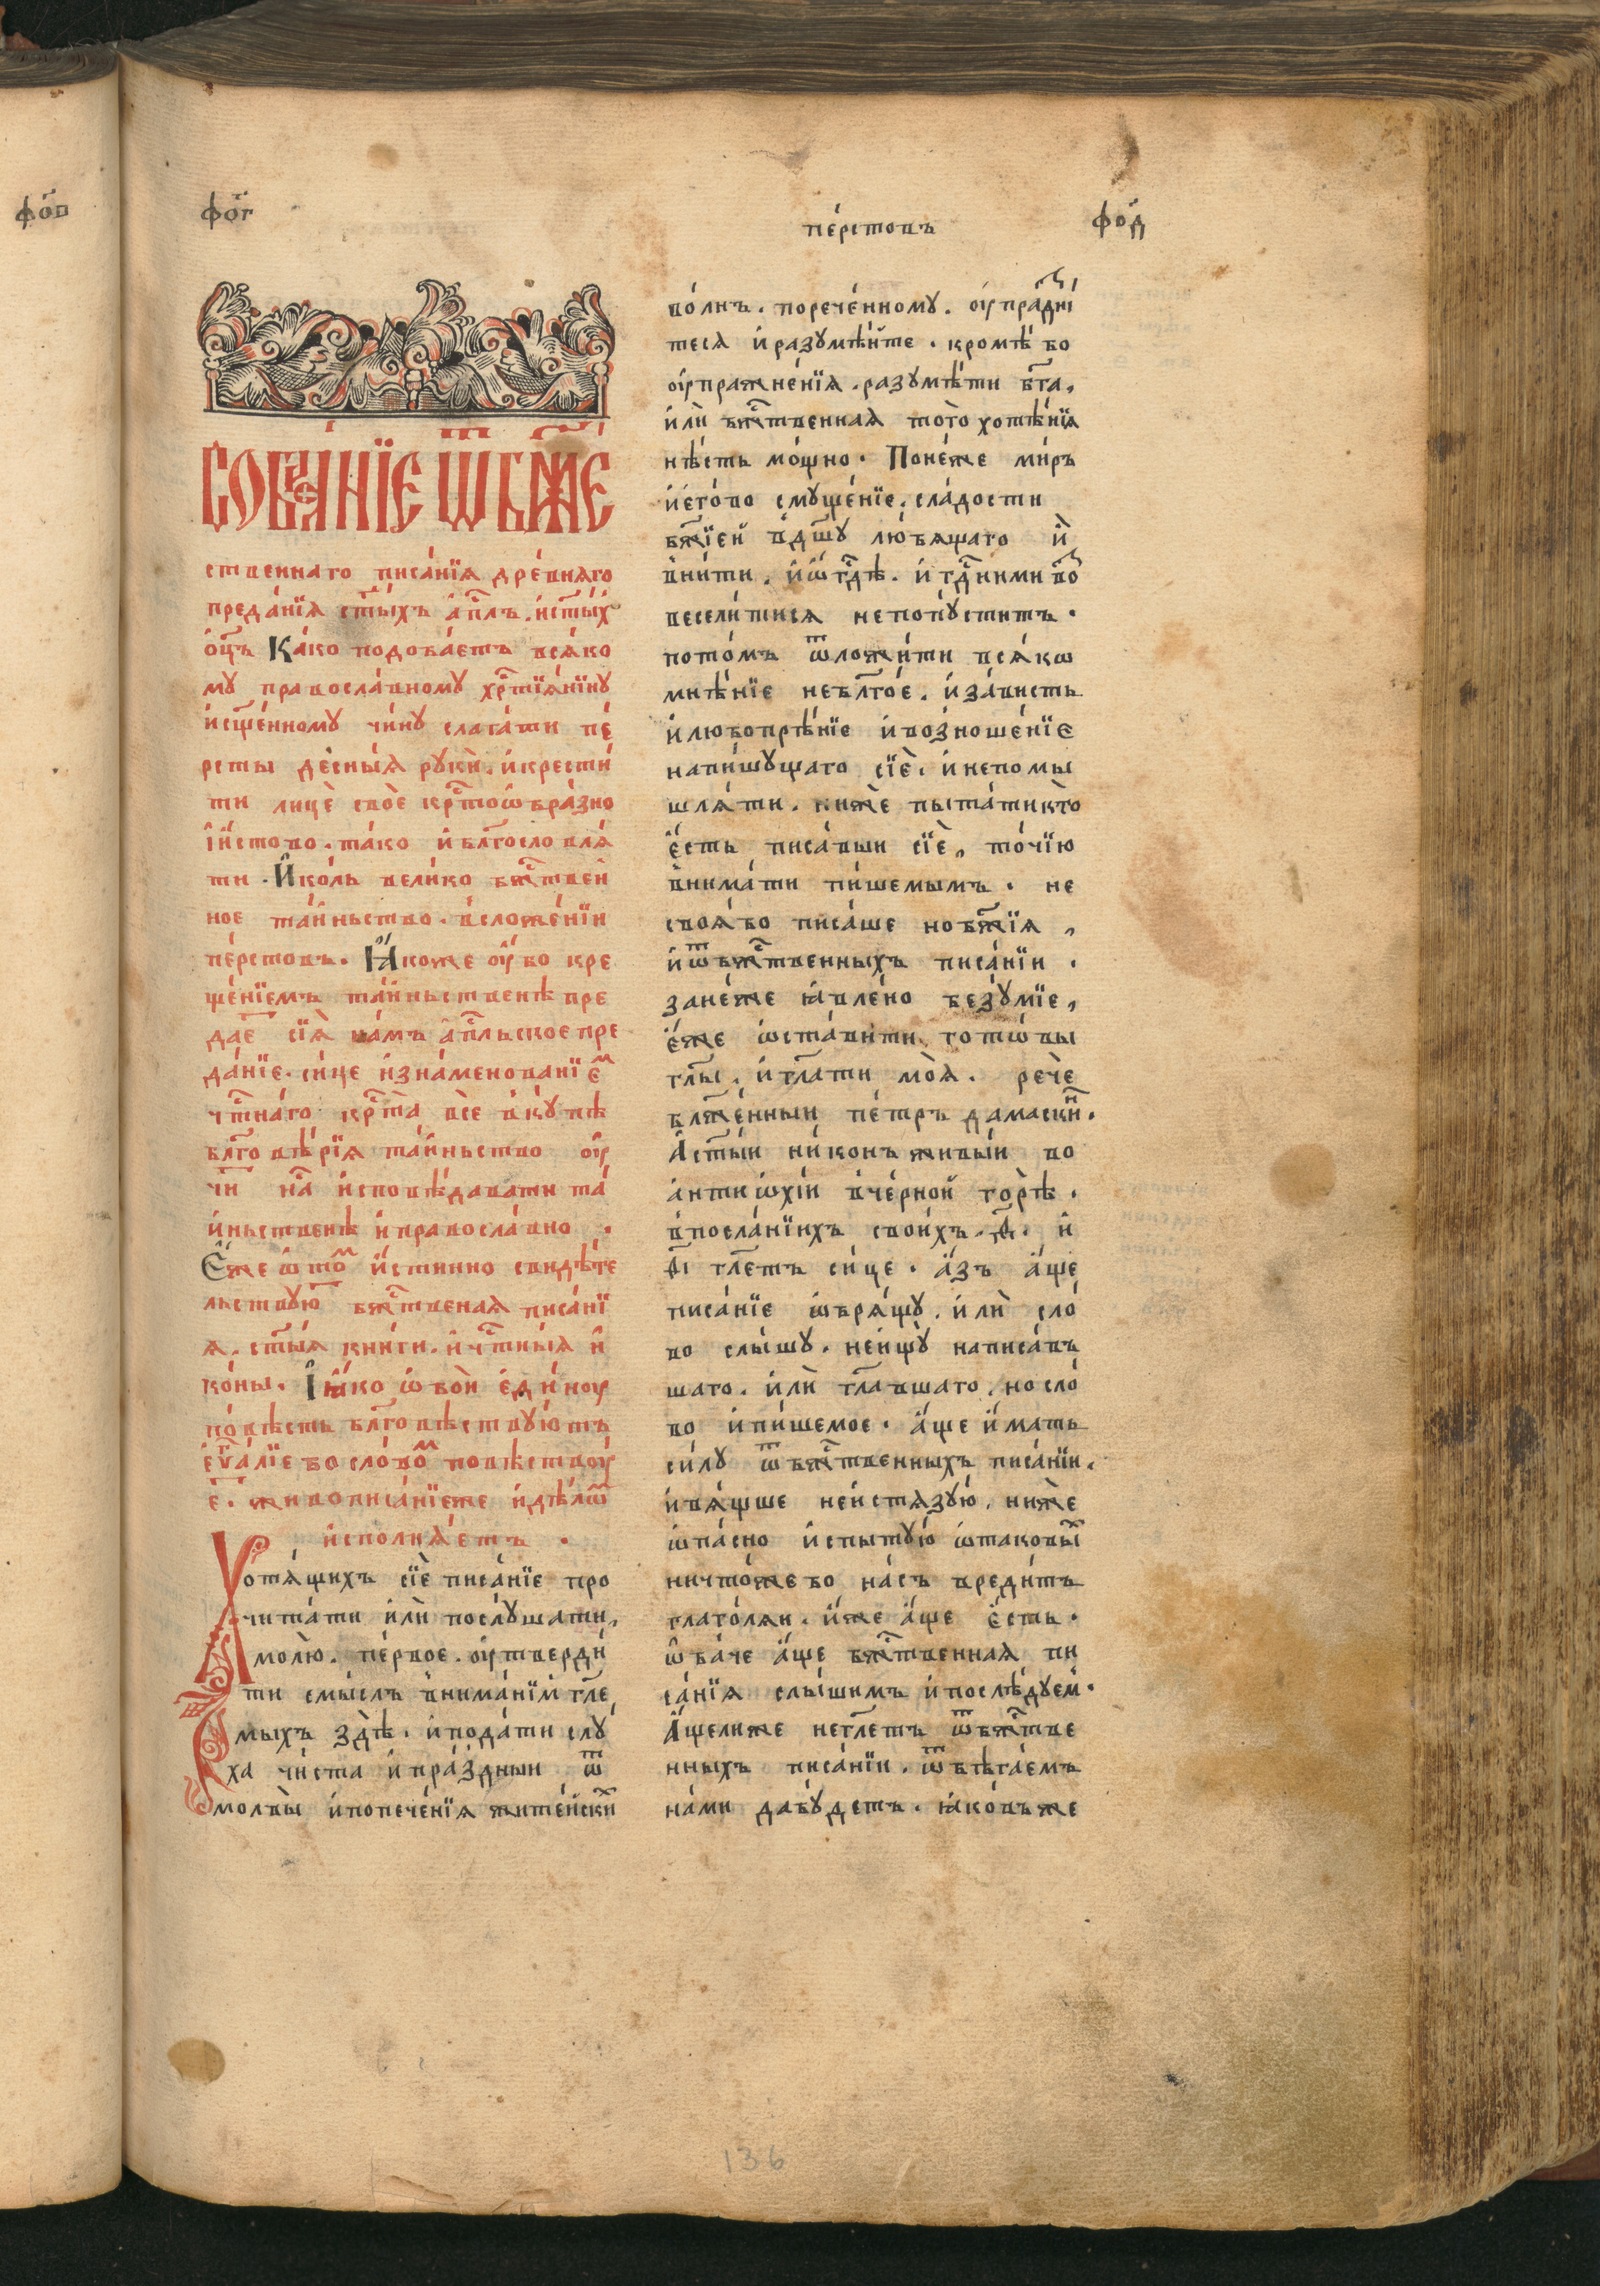 фо́в
фо́г
пе́рстовъ
фо́д
СОБРА́НІЕ Ѿ БЖ҃Е
ственнаго писа́нїѧ дре́внѧго
преда́нїѧ ст҃ы́хъ а҆п҃лъ. и҆ ст҃ы́х
ѻ҆ц҃ъ Ка́ко подоба́етъ всѧ́ко
му правосла́вному хр҃тїѧ́нїну
и҆ сщ҃е́нному чи́ну слага́ти пе́
рсты десны́ѧ руки̂. и҆ крести́
ти лицѐ своѐ кр҃тоѡбра́зно
і҆ и҆́стово. та́ко и҆ бл҃гословлѧ́
ти. И҆ коль вели́ко бж҃твен
ное та́иньство. в сложе́нїи
пе́рстовъ. Ꙗ҆́коже ѹ҆́бо кре
ще́нїемъ та́иньственѣ пре
дае҃ сїѧ̀ на́мъ а҆п҃льское пре
да́нїе. си́це и҆ зна́менованїем
чт҃на́го кр҃та̀ все вку́пѣ
бл҃говѣ́рїѧ та́иньство ѹ҆
чи҃ на҃ и҆сповѣ́давати та́
иньственѣ и҆ правосла́вно.
Е҆́же ѡ҆ то́м и҆́стинно свидѣ́те
льствую҃ бж҃твенаѧ писа́нї
ѧ. ст҃ы́ѧ кни́ги. и҆ чт҃ны́ѧ и҆
ко́ны. І҆ ꙗ҆́ко ѡ҆боѝ е҆ди́ноу
по́вѣсть бл҃говѣству́ютъ
е҆ѵ҃а́лїе бо сло́вом повѣ́ствоу
е҃. живописа́нїе же и҆ дѣ́лом
и҆сполнѧ́етъ.
Хотѧ́щихъ сїѐ писа́нїе про
чита́ти и҆лѝ послу́шати,
молю̀. пе́рвое. ѹ҆тверди́
ти смы́слъ внима́нїи гл҃е
мыхъ здѣ̀. и҆ пода́ти слу́
ха чи́ста и҆ пра́здныи ѿ
молвы̀ и҆ попече́нїѧ жите́иски
во́лнъ. порече́нному. ѹ҆пра́дні
тесѧ и҆ разумѣ́йте. кромѣ́ бо
ѹ҆пражне́нїѧ. разумѣ́ти бг҃а,
и҆лѝ бж҃твеннаѧ того̀ хотѣ́нїѧ
нѣ́сть мо́щно. Поне́же ми́ръ
и҆ его̀ во смуще́нїе, сла́дости
бж҃їей в дш҃у лю́бѧщаго и҆̀
вни́ти. и҆ ѡ҆ гд҃ѣ. и҆ гд҃ними во
весели́тисѧ не попу́ститъ.
пото́мъ ѿложи́ти всѧ́кѡ
мнѣ́нїе небл҃го́е. и҆ за́висть
и҆ любопрѣ́нїе и҆ возноше́нїе
напи́шущаго сїѐ. и҆ не помы
шлѧ́ти. нижѐ пыта́ти кто̀
е҆́сть писа́выи сїѐ, то́чїю
внима́ти пи́шемымъ. не
своѧ́ бо писа́ше но бж҃їѧ,
и҆ ѿ бж҃твенныхъ писа́нїи.
зане́же ꙗ҆влено̀ безу́мїе,
е҆́же ѡ҆ста́вити. го тѡ́вы
гл҃ы. и҆ гл҃ати моѧ̀. речѐ
бл҃же́нныи пе́тръ дамаски́н.
А҆ ст҃ы́и ни́конъ живы́и во
антиѡ҆хі́и в че́рной горѣ̀.
в посла́нїихъ свои́хъ. а҃. и҆
д҃і гл҃етъ си́це. а҆́зъ а҆́ще
писа́нїе ѡ҆брѧ́щу. и҆лѝ сло́
во слы́шу. не и҆щу̀ написа́въ
шаго. и҆лѝ гл҃авшаго. но сло́
во и҆ пи́шемое. а҆́ще и҆́мать
си́лу ѿ бж҃твенныхъ писа́нїи.
и҆ вѧ́щше не и҆стѧзу́ю, нижѐ
ѡ҆па́сно и҆спыту́ю ѡ҆ таковы́х
ничто́же бо на́съ вреди́тъ
глаго́лѧи. и҆́же а҆́ще е҆́сть.
ѡ҆ба́че а҆́ще бж҃твеннаѧ пи
са́нїѧ слы́шимъ и҆ послѣ́дуем.
А҆́щели же не гл҃етъ ѿ бж҃тве
нныхъ писа́нїи. ѿбѣга́емъ
на́ми да бу́детъ. ꙗ҆ковъ же
136